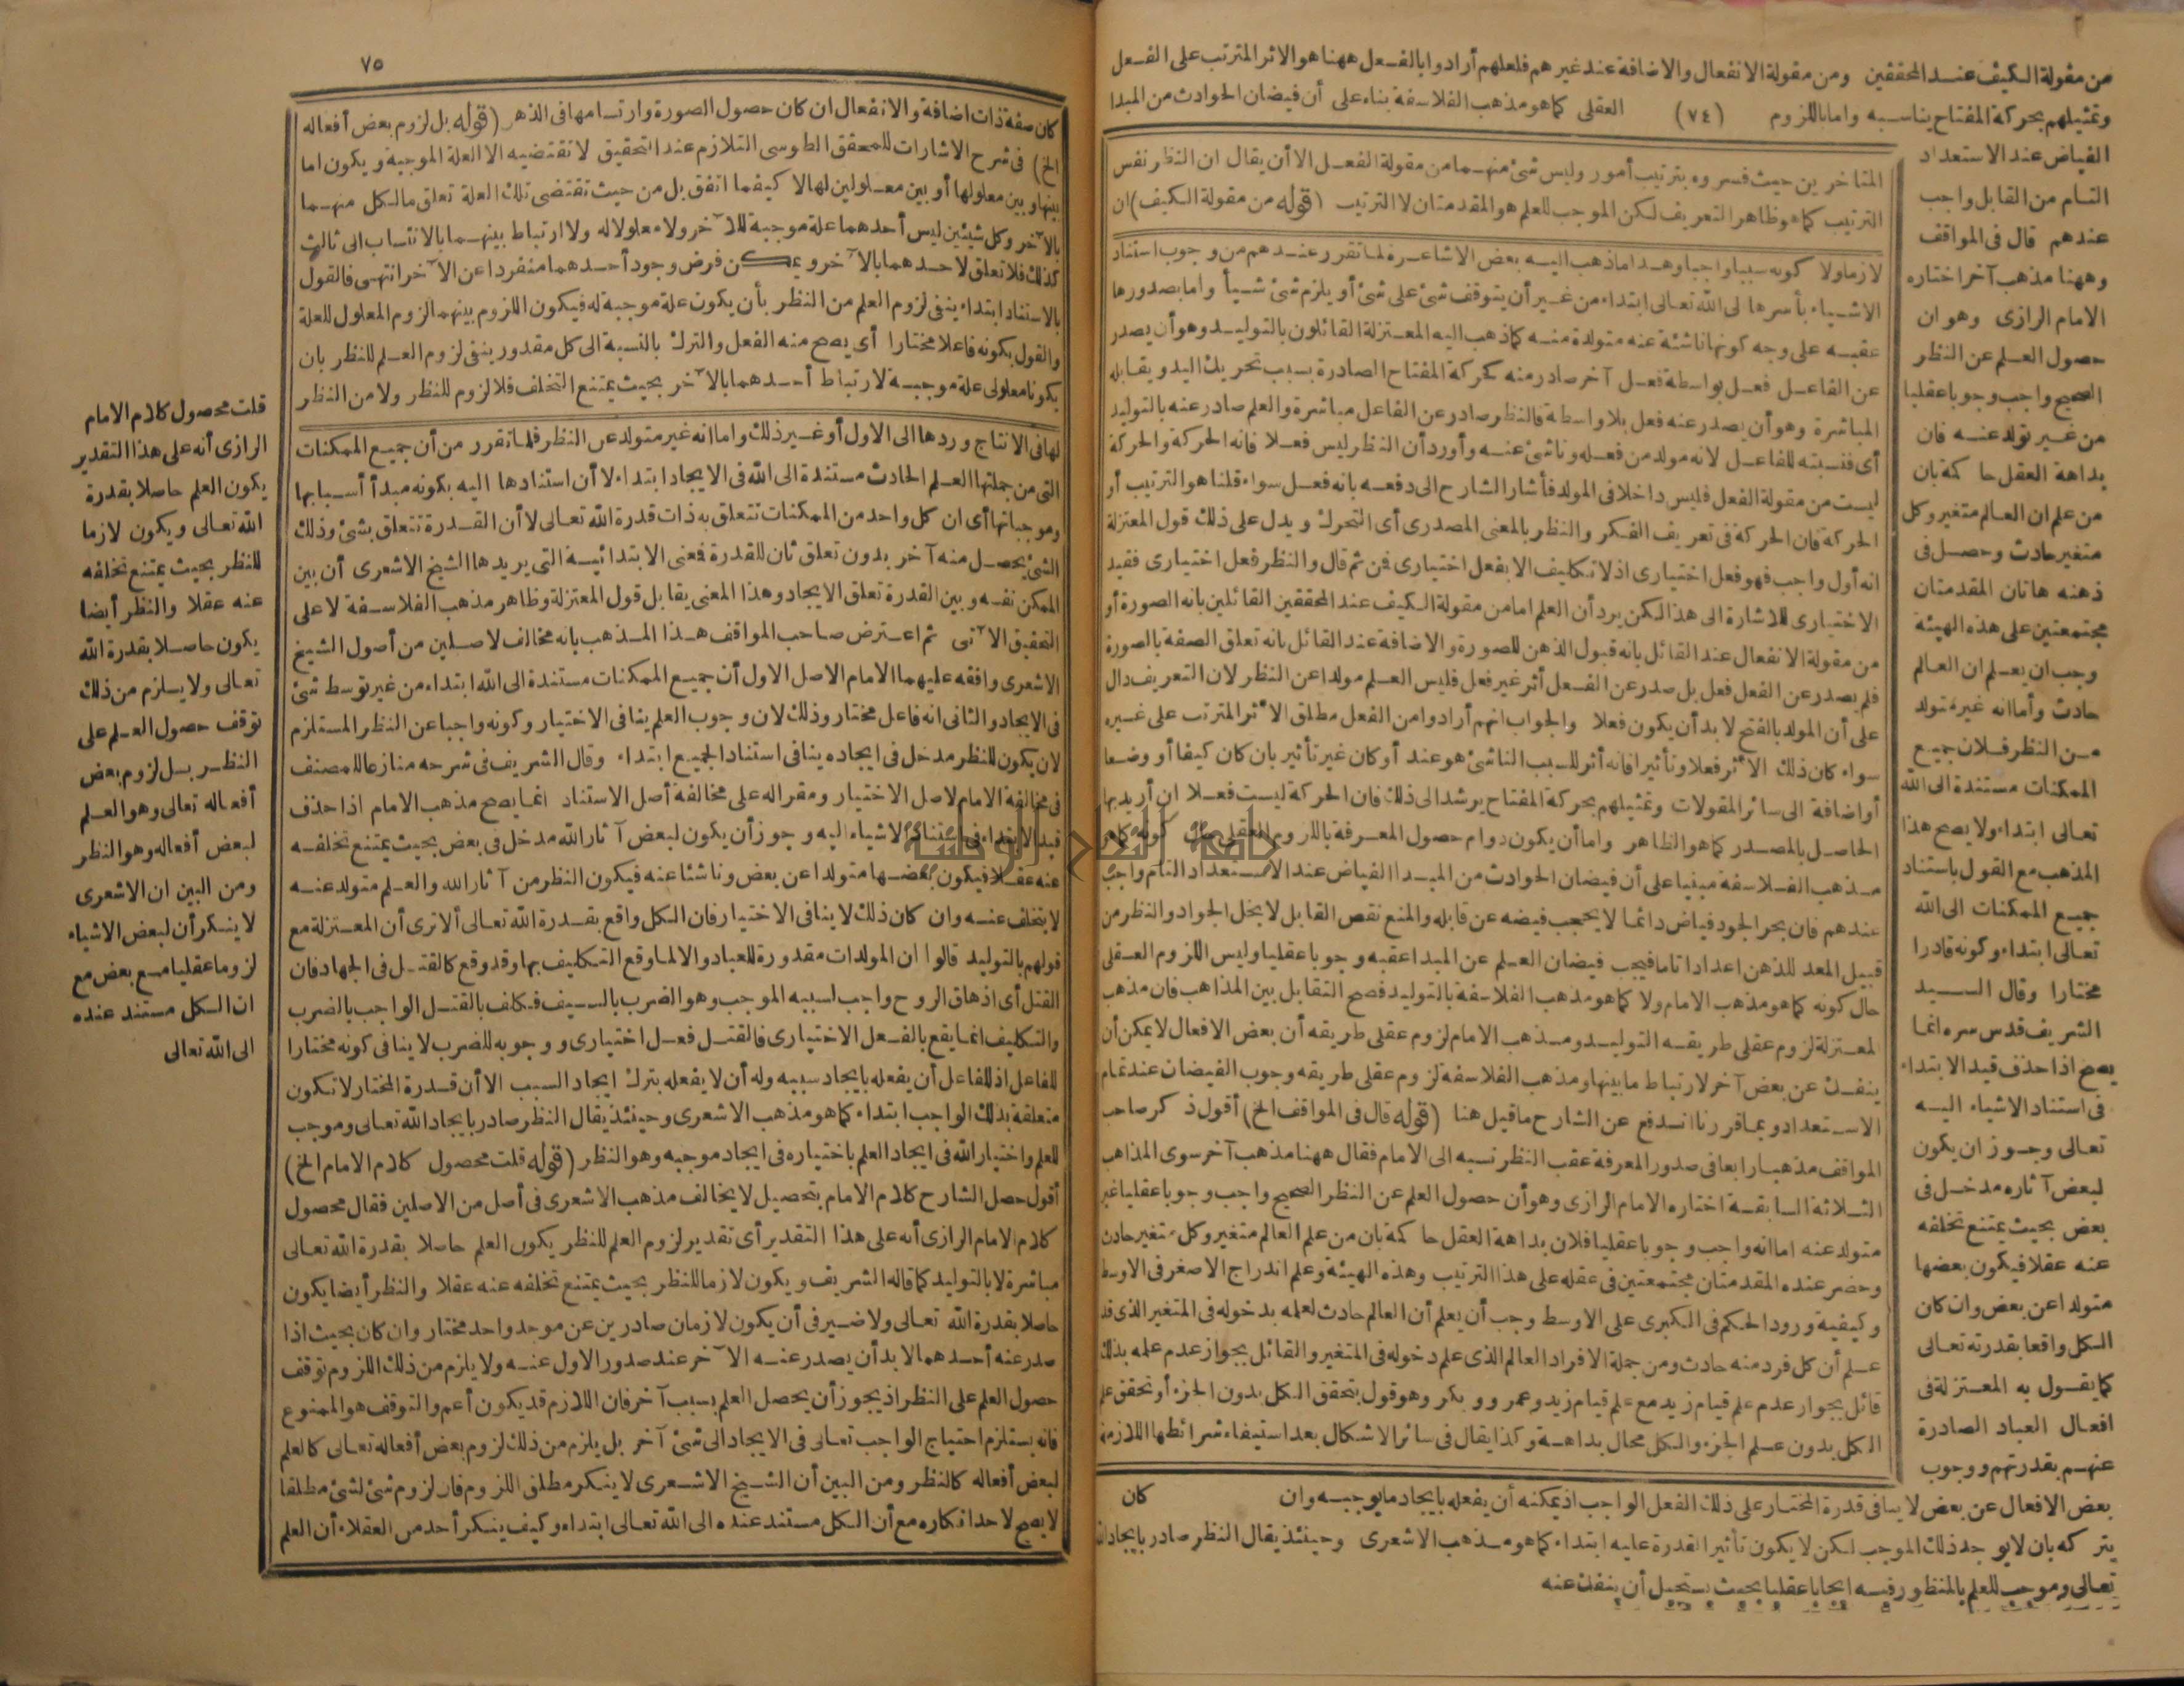 من مقولة الكيف عند المحققين ومن مقولة الانفعال والاضافة عند غيرهم فلعلهم أرادوا بالفعل ههنا هو الاثر المترتب على الفعل
وتمثيلهم بحركة المفتاح يناسبه واما باللزوم (٧٤) العقلى كما هو مذهب الفلاسفة بناء على أن فيضان الحوادث من المبدا
الفياض عند الاستعداد
التام من القابل واجب
عندهم قال فى المواقف
وههنا مذهب آخر اختاره
الامام الرازى وهو ان
حصول العلم عن النظر
الصحيح واجب وجوبا عقليا
من غير تولد عنه فان
بداهة العقل حاكمة بان
من علم ان العالم متغير وكل
متغير حادث وحصل فى
ذهنه هاتان المقدمتان
مجتمعتين على هذه الهيئة
وجب ان يعلم ان العالم
حادث وأما انه غير متولد
من النظر فلان جميع
الممكنات مستندة الى الله
تعالى ابتداء ولا يصح هذا
المذهب مع القول باستناد
جميع الممكنات الى الله
تعالى ابتداء وكونه قادرا
مختارا وقال السيد
الشريف قدس سره انما
يصح اذا حذف قيد الابتداء
فى استناد الاشياء اليه
تعالى وجوز ان يكون
لبعض آثاره مدخل فى
بعض بحيث يمتنع تخلفه
عنه عقلا فيكون بعضها
متولدا عن بعض وان كان
الكل واقعا بقدرته تعالى
كما يقول به المعتزلة فى
افعال العباد الصادرة
عنهم بقدرتهم ووجوب
بعض الافعال عن بعض لا ينافى قدرة المختار على ذلك الفعل الواجب اذ يمكنه أن يفعله بايجاد ما يوجبه وان كان
يتركه بان لا يوجد ذلك الموجب لكن لا يكون تأثير القدرة عليه ابتداء كما هو مذهب الاشعرى وحينئذ يقال النظر صادر بايجاد الله
تعالى وموجب للعلم بالمنظور فيه ايجابا عقليا بحيث يستحيل أن ينفك عنه
المتاخرين حيث فسروه بترتيب أمور وليس شئ منهما من مقولة الفعل الا أن يقال ان النظر نفس
الترتيب كما هو ظاهر التعريف لكن الموجب للعلم هو المقدمتان لا الترتيب (قوله من مقولة الكيف) ان
لازما ولا كونه سببا واجبا وهذا ما ذهب اليه بعض الاشاعرة لما تقرر عندهم من وجوب استناد
الاشياء بأسرها الى الله تعالى ابتداء من غير أن يتوقف شئ على شئ أو يلزم شئ شيأ واما بصدورها
عقيبه على وجه كونها ناشئة عنه متولدة منه كما ذهب اليه المعتزلة القائلون بالتوليد وهو أن يصدر
عن الفاعل فعل بواسطة فعل آخر صادر منه كحركة المفتاح الصادرة بسبب تحريك اليد ويقابله
المباشرة وهو أن يصدر عنه فعل بلا واسطة فالنظر صادر عن الفاعل مباشرة والعلم صادر عنه بالتوليد
أى فنسبته للفاعل لانه مولد من فعله وناشئ عنه وأورد أن النظر ليس فعلا فانه الحركة والحركة
ليست من مقولة الفعل فليس داخلا فى المولد فأشار الشارح الى دفعه بانه فعل سواء قلنا هو الترتيب أو
الحركة فان الحركة فى تعريف الفكر والنظر بالمعنى المصدرى أى التحرك ويدل على ذلك قول المعتزلة
انه أول واجب فهو فعل اختيارى اذ لا تكليف الا بفعل اختيارى فمن ثم قال والنظر فعل اختيارى فقيد
الاختيارى للاشارة الى هذا لكن يرد أن العلم اما من مقولة الكيف عند المحققين القائلين بانه الصورة أو
من مقولة الانفعال عند القائل بانه قبول الذهن للصورة والاضافة عند القائل بانه تعلق الصفة بالصورة
فلم يصدر عن الفعل فعل بل صدر عن الفعل أثر غير فعل فليس العلم مولدا عن النظر لان التعريف دال
على أن المولد بالفتح لا بد أن يكون فعلا والجواب انهم أرادوا من الفعل مطلق الاثر المترتب على غيره
سواء كان ذلك الاثر فعلا وتأثيرا فانه أثر للسبب الناشئ هو عند أو كان غير تأثير بان كان كيفا أو وضعا
أو اضافة الى سائر المقولات وتمثيلهم بحركة المفتاح يرشد الى ذلك فان الحركة ليست فعلا ان أريد بها
الحاصل بالمصدر كما هو الظاهر واما أن يكون دوام حصول المعرفة باللزوم العقلى حال كونه كما هو
مذهب الفلاسفة مبنيا على أن فيضان الحوادث من المبدا الفياض عند الاستعداد التام واجب
عندهم فان بحر الجود فياض دائما لا يحجب فيضه عن قابله والمنع نقص القابل لا بخل الجواد والنظر من
قبيل المعد للذهن اعدادا تاما فيجب فيضان العلم عن المبدا عقبه وجوبا عقليا وليس اللزوم العقلى
حال كونه كما هو مذهب الامام ولا كما هو مذهب الفلاسفة بالتوليد فصح التقابل بين المذاهب فان مذهب
المعتزلة لزوم عقلى طريقه التوليد ومذهب الامام لزوم عقلى طريقه أن بعض الافعال لا يمكن أن
ينفك عن بعض آخر لارتباط ما بينها ومذهب الفلاسفة لزوم عقلى طريقه وجوب الفيضان عند تمام
الاستعداد وبما قررنا اندفع عن الشارح ما قيل هنا (قوله قال فى المواقف الخ) أقول ذكر صاحب
المواقف مذهبا رابعا فى صدور المعرفة عقب النظر نسبه الى الامام فقال ههنا مذهب آخر سوى المذاهب
الثلاثة السابقة اختاره الامام الرازى وهو أن حصول العلم عن النظر الصحيح واجب وجوبا عقليا غير
متولد عنه اما انه واجب وجوبا عقليا فلان بداهة العقل حاكمة بان من علم العالم متغير وكل متغير حادث
وحضر عنده المقدمتان مجتمعتين فى عقله على هذا الترتيب وهذه الهيئة وعلم اندراج الاصغر فى الاوسط
وكيفية ورود الحكم فى الكبرى على الاوسط وجب أن يعلم أن العالم حادث لعلمه بدخوله فى المتغير الذى قد
علم أن كل فرد منه حادث ومن جملة الافراد العالم الذى علم دخوله فى المتغير والقائل بجواز عدم علمه بذلك
قائل بجواز عدم علم قيام زيد مع علم قيام زيد وعمرو وبكر وهو قول بتحقق الكل بدون الجزء أو تحقق علم
الكل بدون علم الجزء والكل محال بداهة وكذا يقال فى سائر الاشكال بعد استيفاء شرائطها اللازمة
٧٥
كان صفة ذات اضافة والانفعال ان كان حصول الصورة وارتسامها فى الذهن (قوله بل لزوم بعض أفعاله
الخ) فى شرح الاشارات للمحقق الطوسى التلازم عند التحقيق لا تقتضيه الا العلة الموجبة ويكون اما
بينها وبين معلولها أو بين معلولين لها لا كيفما اتفق بل من حيث تقتضى تلك العلة تعلق ما لكل منهما
بالآخر وكل شيئين ليس أحدهما علة موجبة للآخر ولا معلولا له ولا ارتباط بينهما بالانتساب الى ثالث
كذلك فلا تعلق لاحدهما بالآخر ويمكن فرض وجود أحدهما منفردا عن الآخر انتهى فالقول
بالاستناد ابتداء ينفى لزوم العلم من النظر بأن يكون علة موجبة له فيكون اللزوم بينهما لزوم المعلول للعلة
والقول بكونه فاعلا مختارا أى يصح منه الفعل والترك بالنسبة الى كل مقدور ينفى لزوم العلم للنظر بان
يكونا معلولى علة موجبة لارتباط أحدهما بالآخر بحيث يمتنع التخلف فلا لزوم للنظر ولا من النظر
لها فى الانتاج وردها الى الاول أو غير ذلك واما انه غير متولد عن النظر فلما تقرر من أن جميع الممكنات
التى من جملتها العلم الحادث مستندة الى الله فى الايجاد ابتداء لا أن استنادها اليه بكونه مبدأ أسبابها
وموجباتها أى ان كل واحد من الممكنات تتعلق به ذات قدرة الله تعالى لا أن القدرة تتعلق بشئ وذلك
الشئ يحصل منه آخر بدون تعلق ثان للقدرة فمعنى الابتدائية التى يريدها الشيخ الاشعرى أن بين
الممكن نفسه وبين القدرة تعلق الايجاد وهذا المعنى يقابل قول المعتزلة وظاهر مذهب الفلاسفة لا على
التحقيق الآتى ثم اعترض صاحب المواقف هذا المذهب بانه مخالف لاصلين من أصول الشيخ
الاشعرى وافقه عليهما الامام الاصل الاول أن جميع الممكنات مستندة الى الله ابتداء من غير توسط شئ
فى الايجاد والثانى انه فاعل مختار وذلك لان وجوب العلم ينافى الاختيار وكونه واجبا عن النظر المستلزم
لان يكون للنظر مدخل فى ايجاده ينافى استناد الجميع ابتداء وقال الشريف فى شرحه منازعا للمصنف
فى مخالفة الامام لاصل الاختيار ومقرا له على مخالفة أصل الاستناد انما يصح مذهب الامام اذا حذف
قيد الابتداء فى استناد الاشياء اليه وجوز أن يكون لبعض آثار الله مدخل فى بعض بحيث يمتنع تخلفه
عنه عقلا فيكون بعضها متولدا عن بعض وناشئا عنه فيكون النظر من آثار الله والعلم متولد عنه
لا يتخلف عنه وان كان ذلك لا ينافى الاختيار فان الكل واقع بقدرة الله تعالى ألا ترى أن المعتزلة مع
قولهم بالتوليد قالوا ان المولدات مقدورة للعباد والا لما وقع التكليف بها وقد وقع كالقتل فى الجهاد فان
القتل أى اذهاق الروح واجب لسببه الموجب وهو الضرب بالسيف فيكلف بالقتل الواجب بالضرب
والتكليف انما يقع بالفعل الاختيارى فالقتل فعل اختيارى ووجوبه للضرب لا ينافى كونه مختارا
للفاعل اذ للفاعل أن يفعله بايجاد سببه وله أن لا يفعله بترك ايجاد السبب الا أن قدرة المختار لا تكون
متعلقة بذلك الواجب ابتداء كما هو مذهب الاشعرى وحينئذ يقال النظر صادر بايجاد الله تعالى وموجب
للعلم واختيار الله فى ايجاد العلم باختياره فى ايجاد موجبه وهو النظر (قوله قلت محصول كلام الامام الخ)
أقول حصل الشارح كلام الامام بتحصيل لا يخالف مذهب الاشعرى فى أصل من الاصلين فقال محصول
كلام الامام الرازى أنه على هذا التقدير أى تقدير لزوم العلم للنظر يكون العلم حاصلا بقدرة الله تعالى
مباشرة لا بالتوليد كما قاله الشريف ويكون لازما للنظر بحيث يمتنع تخلفه عنه عقلا والنظر أيضا يكون
حاصلا بقدرة الله تعالى ولا ضير فى أن يكون لازمان صادرين عن موجد واحد مختار وان كان بحيث اذا
صدر عنه أحدهما لا بد أن يصدر عنه الآخر عند صدور الاول عنه ولا يلزم من ذلك اللزوم توقف
حصول العلم على النظر اذ يجوز أن يحصل العلم بسبب آخر فان اللازم قد يكون أعم والتوقف هو الممنوع
فانه يستلزم احتياج الواجب تعالى فى الايجاد الى شئ آخر بل يلزم من ذلك لزوم بعض أفعاله تعالى كالعلم
لبعض أفعاله كالنظر ومن البين أن الشيخ الاشعرى لا ينكر مطلق اللزوم فان لزوم شئ لشئ مطلقا
لا يصح لاحد انكاره مع أن الكل مستند عنده الى الله تعالى ابتداء وكيف ينكر أحد من العقلاء أن العلم
قلت محصول كلام الامام
الرازى أنه على هذا التقدير
يكون العلم حاصلا بقدرة
الله تعالى ويكون لازما
للنظر بحيث يمتنع تخلفه
عنه عقلا والنظر أيضا
يكون حاصلا بقدرة الله
تعالى ولا يلزم من ذلك
توقف حصول العلم على
النظر بل لزوم بعض
أفعاله تعالى وهو العلم
لبعض أفعاله وهو النظر
ومن البين ان الاشعرى
لا ينكر أن لبعض الاشياء
لزوما عقليا مع بعض مع
ان الكل مستند عنده
الى الله تعالى